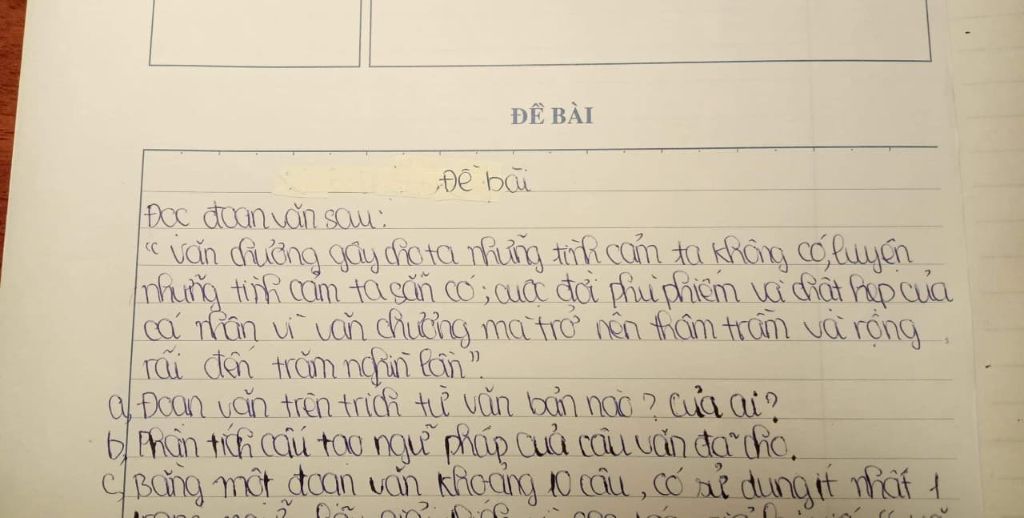 ĐỀ BÀI
Đề bài
Đọc đoạn văn sau:
"Văn chương gây cho ta những tình cảm ta không có, luyện
những tình cảm ta sẵn có; cuộc đời phù phiếm và chật hẹp của
cá nhân vì văn chương mà trở nên thâm trầm và rộng
rãi đến trăm nghìn lần".
a, Đoạn văn trên trích từ văn bản nào? Của ai?
b, Phân tích cấu tạo ngữ pháp của câu văn đã cho.
c, Bằng một đoạn văn khoảng 10 câu, có sử dụng ít nhất 1